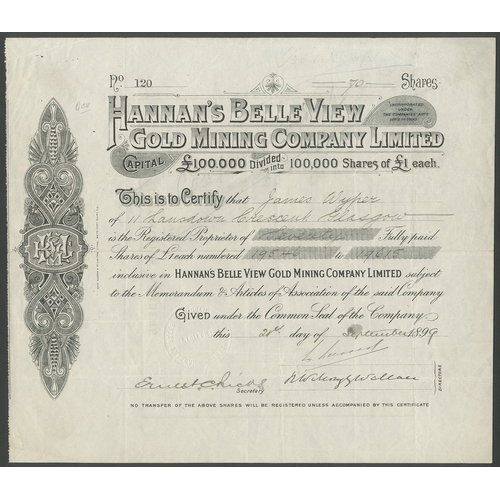 No 120 70 Shares
HANNAN'S BELLE VIEW
GOLD MINING COMPANY LIMITED
INCORPORATED
UNDER
THE COMPANIES ACTS
CAPITAL £100,000 Divided into 100,000 Shares of £1 each.
This is to Certify that James Wyper
of 11 Lansdown Crescent Glasgow
is the Registered Proprietor of Seventy Fully paid
Shares of £1 each numbered 19546 to 19615
inclusive in HANNAN'S BELLE VIEW GOLD MINING COMPANY LIMITED subject
to the Memorandum & Articles of Association of the said Company
GIVEN under the Common Seal of the Company
this day of September 1899
Ernest
Secretary
Wallace
DIRECTORS
NO TRANSFER OF THE ABOVE SHARES WILL BE REGISTERED UNLESS ACCOMPANIED BY THIS CERTIFICATE